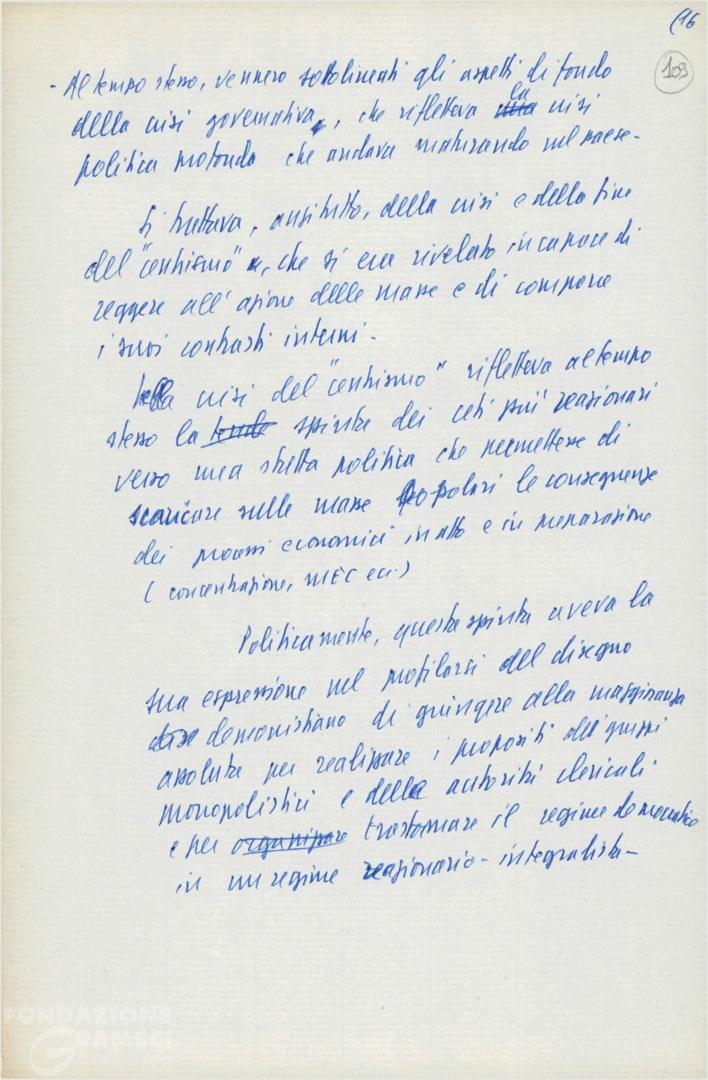 (16
109
- Al tempo stesso, vennero sottolineati gli aspetti di fondo
della crisi governativa, che rifletteva una la crisi
politica profonda che andava maturando nel paese -
Si trattava, anzitutto, della crisi e della fine
del "centrismo", che si era rivelato incapace di
reggere all'azione delle masse e di comporre
i suoi contrasti interni -
La crisi del "centrismo" rifletteva al tempo
stesso la spinta dei ceti più reazionari
verso una stretta politica che permettesse di
scaricare sulle masse popolari le conseguenze
dei processi economici in atto e in preparazione
(concentrazione, MEC ecc.)
Politicamente, questa spinta aveva la
sua espressione nel profilarsi del disegno
democristiano di giungere alla maggioranza
assoluta per realizzare i propositi dei gruppi
monopolistici e delle autorità clericali
e per organizzare trasformare il regime democratico
in un regime reazionario - integralista -
FONDAZIONE
GRAMSCI